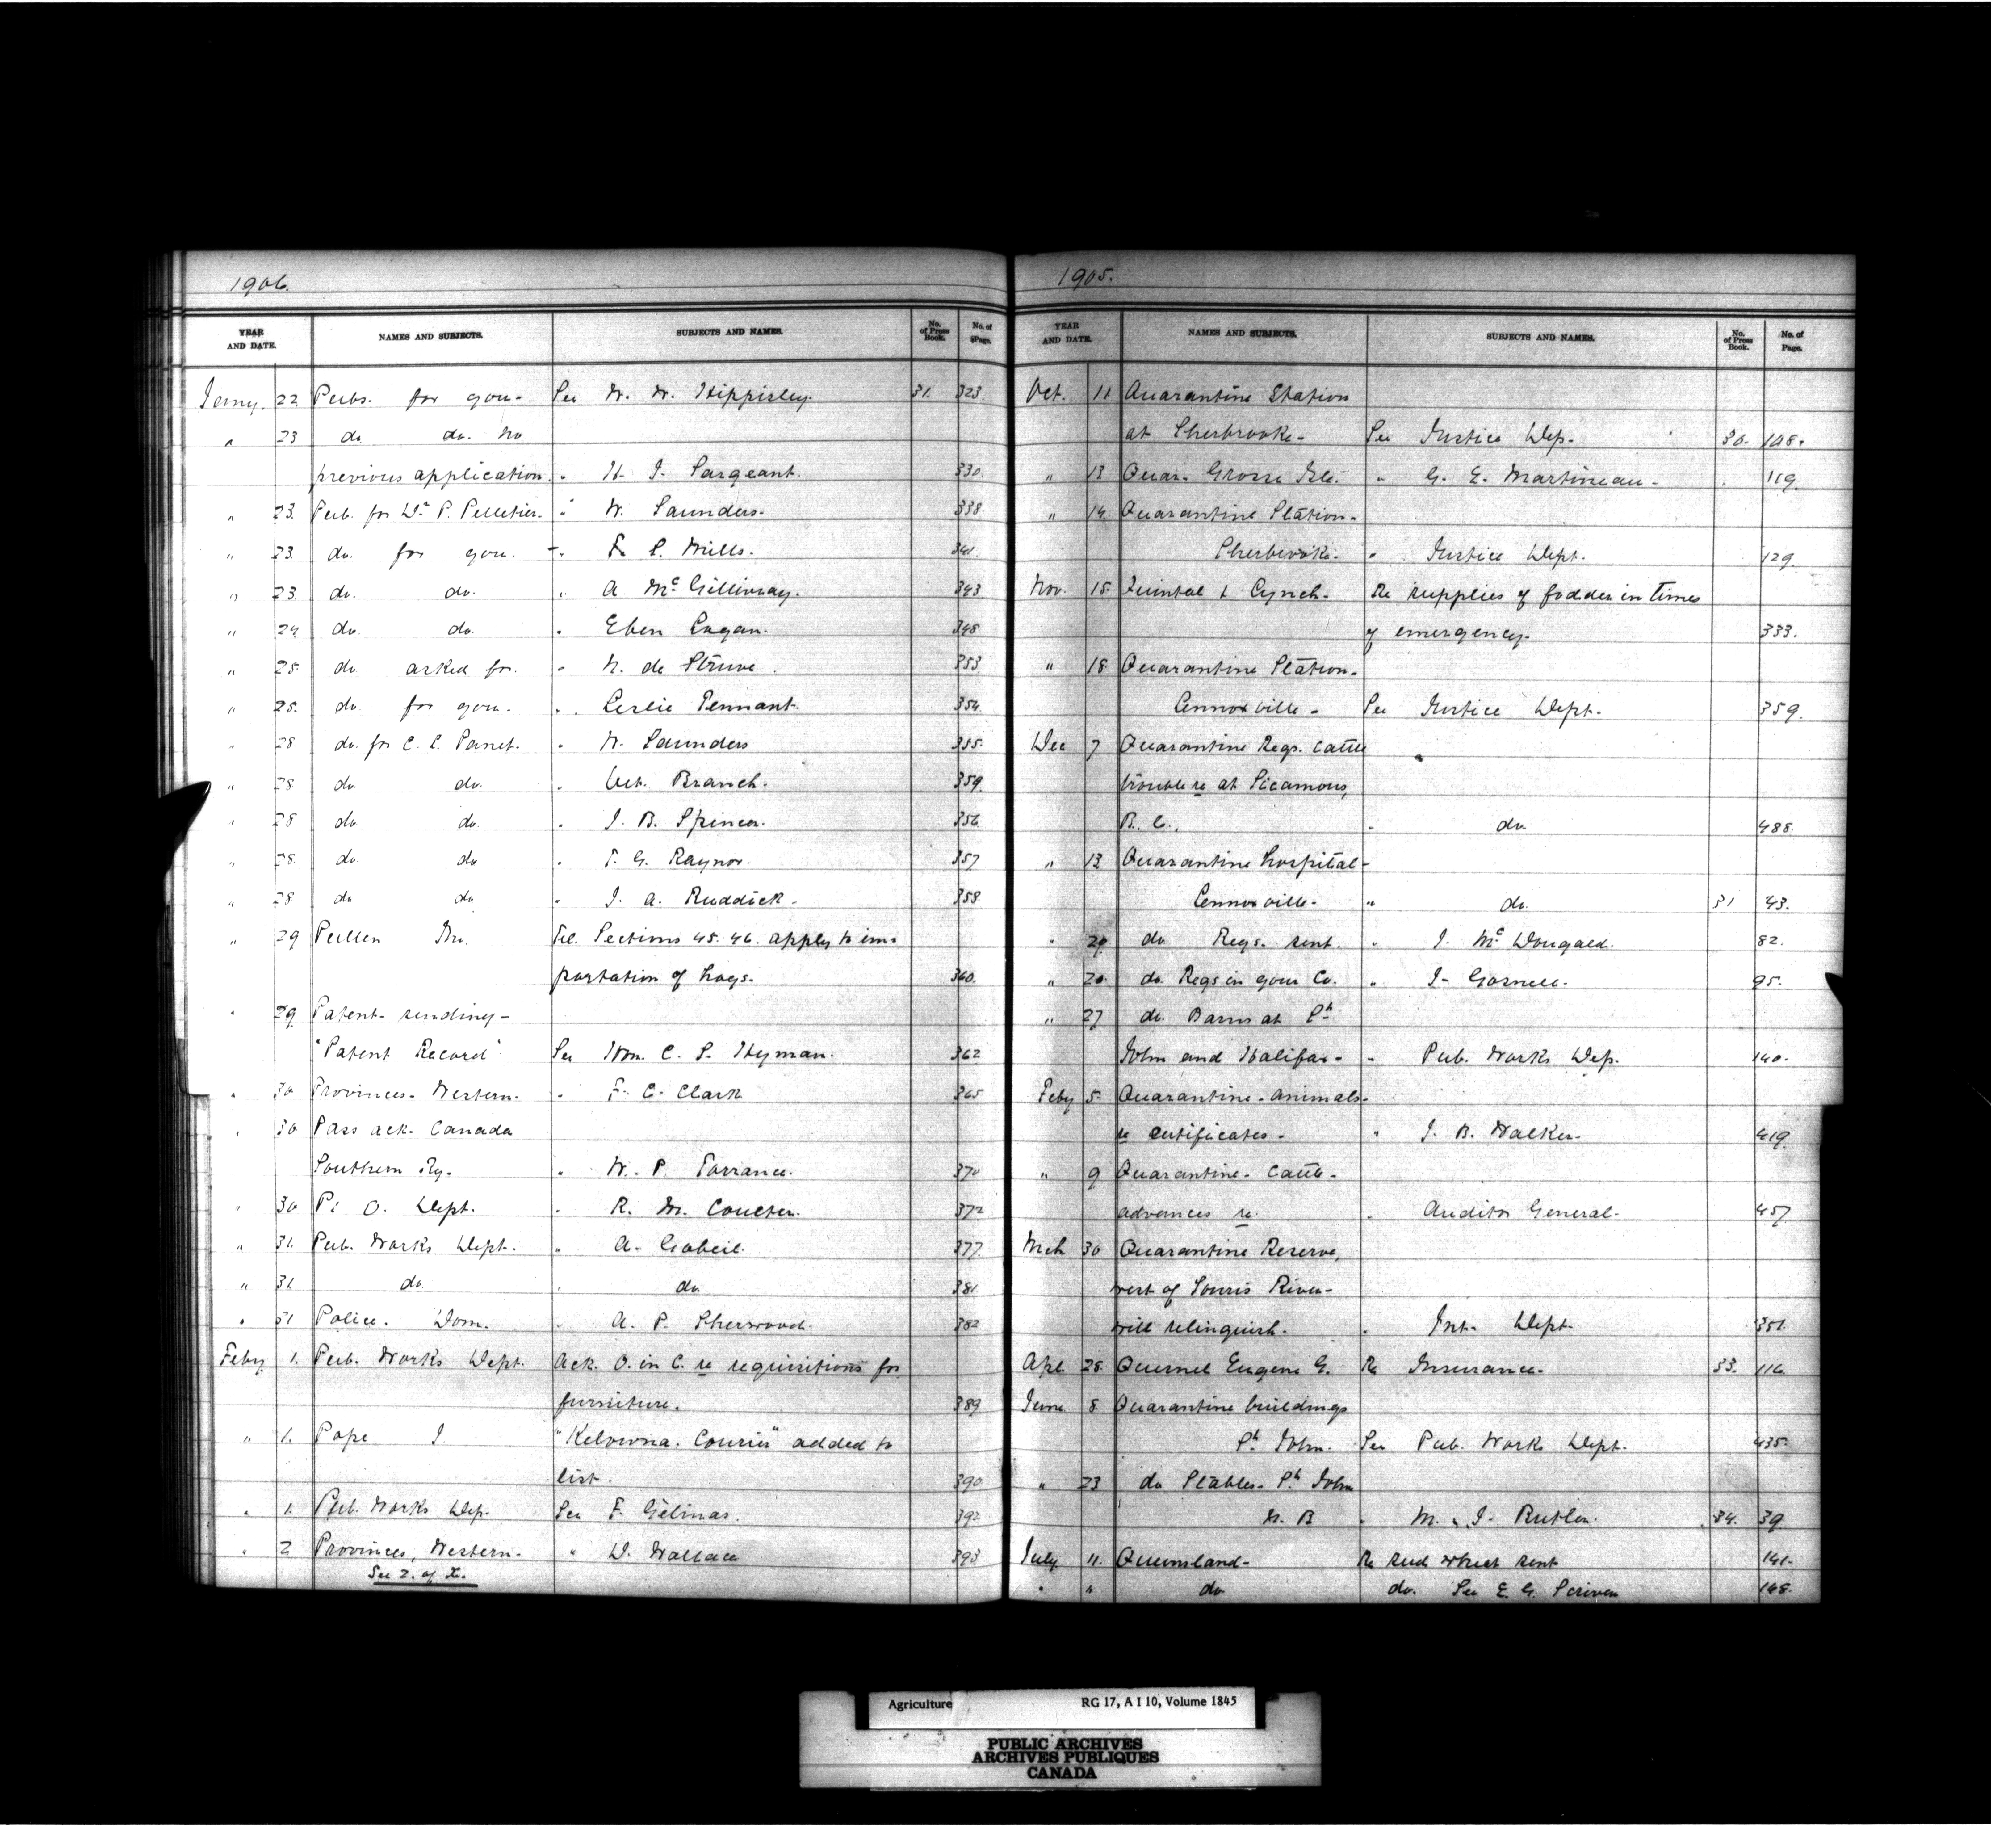 1906.
YEAR AND DATE. NAMES AND SUBJECTS. SUBJECTS AND NAMES. No. of Press Book. No. of Page.
Jany. 22 Pubs. for you - See W. W. Hippisley. 31. 323.
" 23 do do. no
previous application. " H. J. Sargeant. 330.
" 23. Pub. for Dr P. Pelletier. " W. Saunders. 338
" 23. do. for you. " F. S. Mills. 341.
" 23. do. do. " A McGillivray. 343
" 24 do. do. " Eben 348.
" 25. do asked for. " N. de Struve. 353
" 25. do. for you. " Leslie Tennant. 354.
" 28. do. for C. E. Panet. " W. Saunders 355.
" 28 do. do. " Vet. Branch. 359.
" 28 do. do. " J. B. Spencer. 356
" 28. do. do " T. G. Raynor. 357
" 28. do do " J. A. Ruddick. 358
" 29 Pullen Tel. Sections 45. 46. apply to im-
portation of hogs. 360.
" 29 Patent - sending -
"Patent Record" See Hon. C. S. Hyman. 362
" 30 Provinces - Western. " F. C. Clark 365
" 30 Pass ack. Canada
Southern Ry. " W. P. Torrance. 370
" 30 P. O. Dept. " R. M. Coulter. 372
" 31. Pub. Works Dept. " A. Gobeil. 377
" 31 do. " do. 381
" 31 Police. Dom. " A. P. Sherwood. 382
Feby 1. Pub. Works Dept. Ack. O. in C. re requisitions for
furniture. 389
" 1. Pope J. "Kelowna. Courier" added to
list. 390
" 1. Pub. Works Dep. See F. Gélinas. 392
" 2 Provinces, Western. " D. Wallace 393
See 2. of X.
1905.
YEAR AND DATE. NAMES AND SUBJECTS. SUBJECTS AND NAMES. No. of Press Book. No. of Page.
Oct. 11 Quarantine Station
at Sherbrooke - See Justice Dep. 30. 108.
" 13 Quar. Grosse Isle. " G. E. Martineau - 119.
" 14. Quarantine Station -
Sherbrooke. " Justice Dept. 129.
Nov. 15. Quintal & Lynch. Re supplies of fodder in times
of emergency. 333.
" 18 Quarantine Station -
Lennoxville - See Justice Dept. 359.
Dec 7 Quarantine Regs. cattle
trouble re at Sicamous,
B. C., " do 488.
" 13 Quarantine hospital -
Lennoxville - " do. 31 43.
" do Regs. sent. " J. McDougald. 82.
" 20 do. Regs in your Co. " J. Gornell. 95.
" 27 do. Barns at St
John and Halifax - " Pub. Works Dep. 140.
Feby 5. Quarantine - animals -
re certificates - " J. B. Walker. 419.
" 9 Quarantine - cattle -
advances re. " Auditor General. 457
Mch 30 Quarantine Reserve,
west of Souris River -
will relinquish. " Int. Dept. 351.
Apl. 28. Quesnel Eugene G. Re Insurance. 33. 116.
June 8. Quarantine buildings
St. John. See Pub. Works Dept. 435.
" 23 do Stables - St. John
N. B " M. J. Butler. 34. 39
July 11. Queensland - Re seed wheat sent 141.
" " do do. See E. G. Scriven 148.
Agriculture RG 17, A I 10, Volume 1845
PUBLIC ARCHIVES
ARCHIVES PUBLIQUES
CANADA